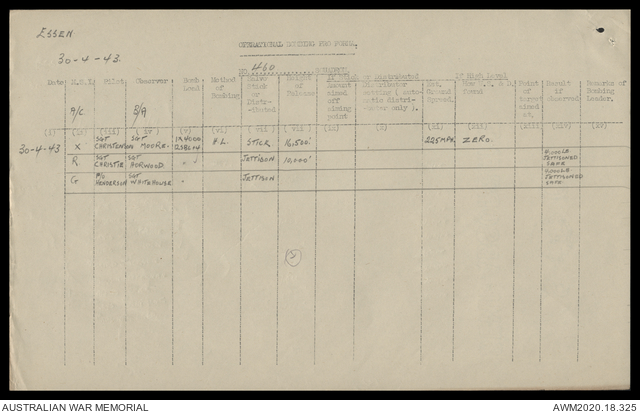 ESSEN
30-4-43.
OPERATIONAL BOMBING PRO FORMA.
460 SQUADRON
Date Pilot. Observer Bomb Load Method of Bombing Salvo Stick or Distributed. Height of Release If High Level
A/C B/A
Amount aimed off aiming point
Distributor setting ( automatic distributor only ).
Ground Speed.
Point of target aimed at.
Result if observed
Remarks of Bombing Leader.
(i) (ii) (iii) (iv) (v) (vi) (vii) (viii) (ix) (x) (xi) (xii) (xiii) (xiv) (xv)
30-4-43 X SGT CHRISTENSEN SGT MOORE. 1x4000 H.L. STICK 16,500' 225MPH. ZERO.
R SGT CHRISTIE SGT HORWOOD " JETTISON 10,000' JETTISONED SAFE
G P/O HENDERSON SGT WHITEHOUSE " JETTISON JETTISONED SAFE.
AUSTRALIAN WAR MEMORIAL
AWM2020.18.325